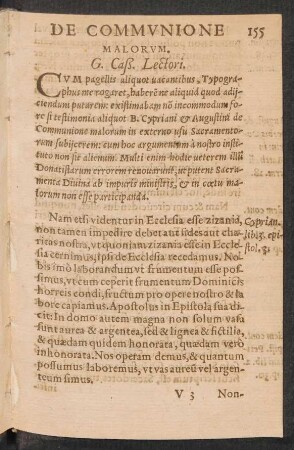 DE COMMVNIONE 155
MALORVM.
G. Cass. Lectori.
CVM pagellis aliquot uacantibus, Typogra-
phus me rogaret, haberéne aliquid quod adij-
ciendum putarem: existimabam nō incommodum fo-
re si testimonia aliquot B. Cypriani & Augustini de
Communione malorum in externo usu Sacramento-
rum subijcerem: cum hoc argumentum à nostro insti-
tuto non sit alienum. Multi enim hodie ueterem illū
Donatistarum errorem renouarunt, ut putent Sacra-
menta Diuina ab impuris ministris, & in cœtu ma-
lorum non esse participanda.
Nam etsi videntur in Ecclesia esse zizania,
non tamen impedire debet aut fides aut cha-
ritas nostra, vt quoniam zizania esse in Eccle-
sia cernimus, ipsi de Ecclesia recedamus. No-
bis imò laborandum vt frumentum esse pos-
simus, vt cum ceperit frumentum Dominicis
horreis condi, fructum pro opere nostro & la-
bore capiamus. Apostolus in Epistola sua di-
cit: In domo autem magna non solum vasa
sunt aurea & argentea, sed & lignea & fictilia,
& quædam quidem honorata, quædam verò
inhonorata. Nos operam demus, & quantum
possumus laboremus, vt vas aureū vel argen-
teum simus.
Cyprian.
lib. 3. epi-
stol. 3.
V 3 Non-